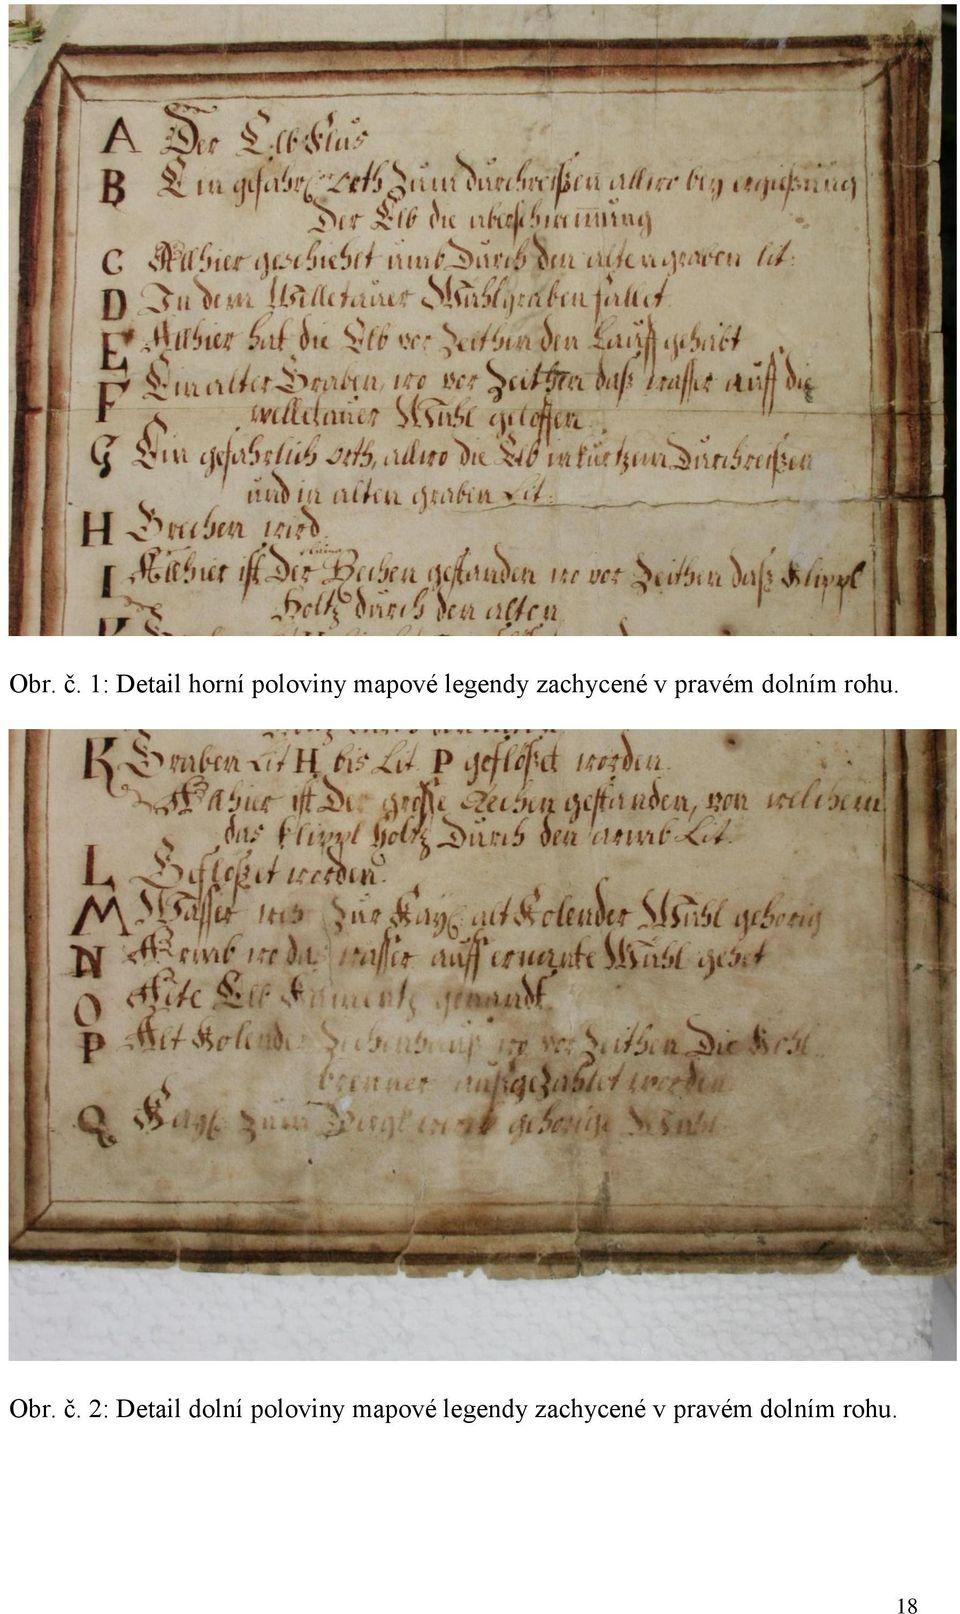 A Der Elb Flus
B Ein gefährl. orth zum durchreißen allwo bey ergießung
Der Elb die überschwemung
C Allhier geschiehet umb Durch den alten graben lit:
D In dem Willetauer Mühlgraben fallet.
E Allhier hat die Elb vor Zeithen den Lauff gehabt
F Ein alter Graben, wo vor Zeithen daß wasser auff die
welletauer Mühl geloffen
G Ein gefährlich orth, allwo die Elb in kurtzem Durchreißen
und in alten graben Lit:
H Brechen wird.
I Allhier ist Der kleine Rechen gestanden wo vor Zeithen daß Klippl
Holtz durch den alten
Obr. č. 1: Detail horní poloviny mapové legendy zachycené v pravém dolním rohu.
K Graben Lit H bis Lit. P geflößet worden.
Allhier ist Der große Rechen gestanden, von welchem
das Klippl holtz Durch den armb Lit.
L Geflößet worden.
M Wasser zur Kayl. alt Kolender Mühl gehorig
N Armb wo das wasser auff ernante Mühl gehet
O Alte Elb genandt.
P Alt Kolender Zechenhauß wo vor Zeithen Die Kohl
brenner außgezahlet worden
Q Kayl. zum gehorige Mühl.
Obr. č. 2: Detail dolní poloviny mapové legendy zachycené v pravém dolním rohu.
18